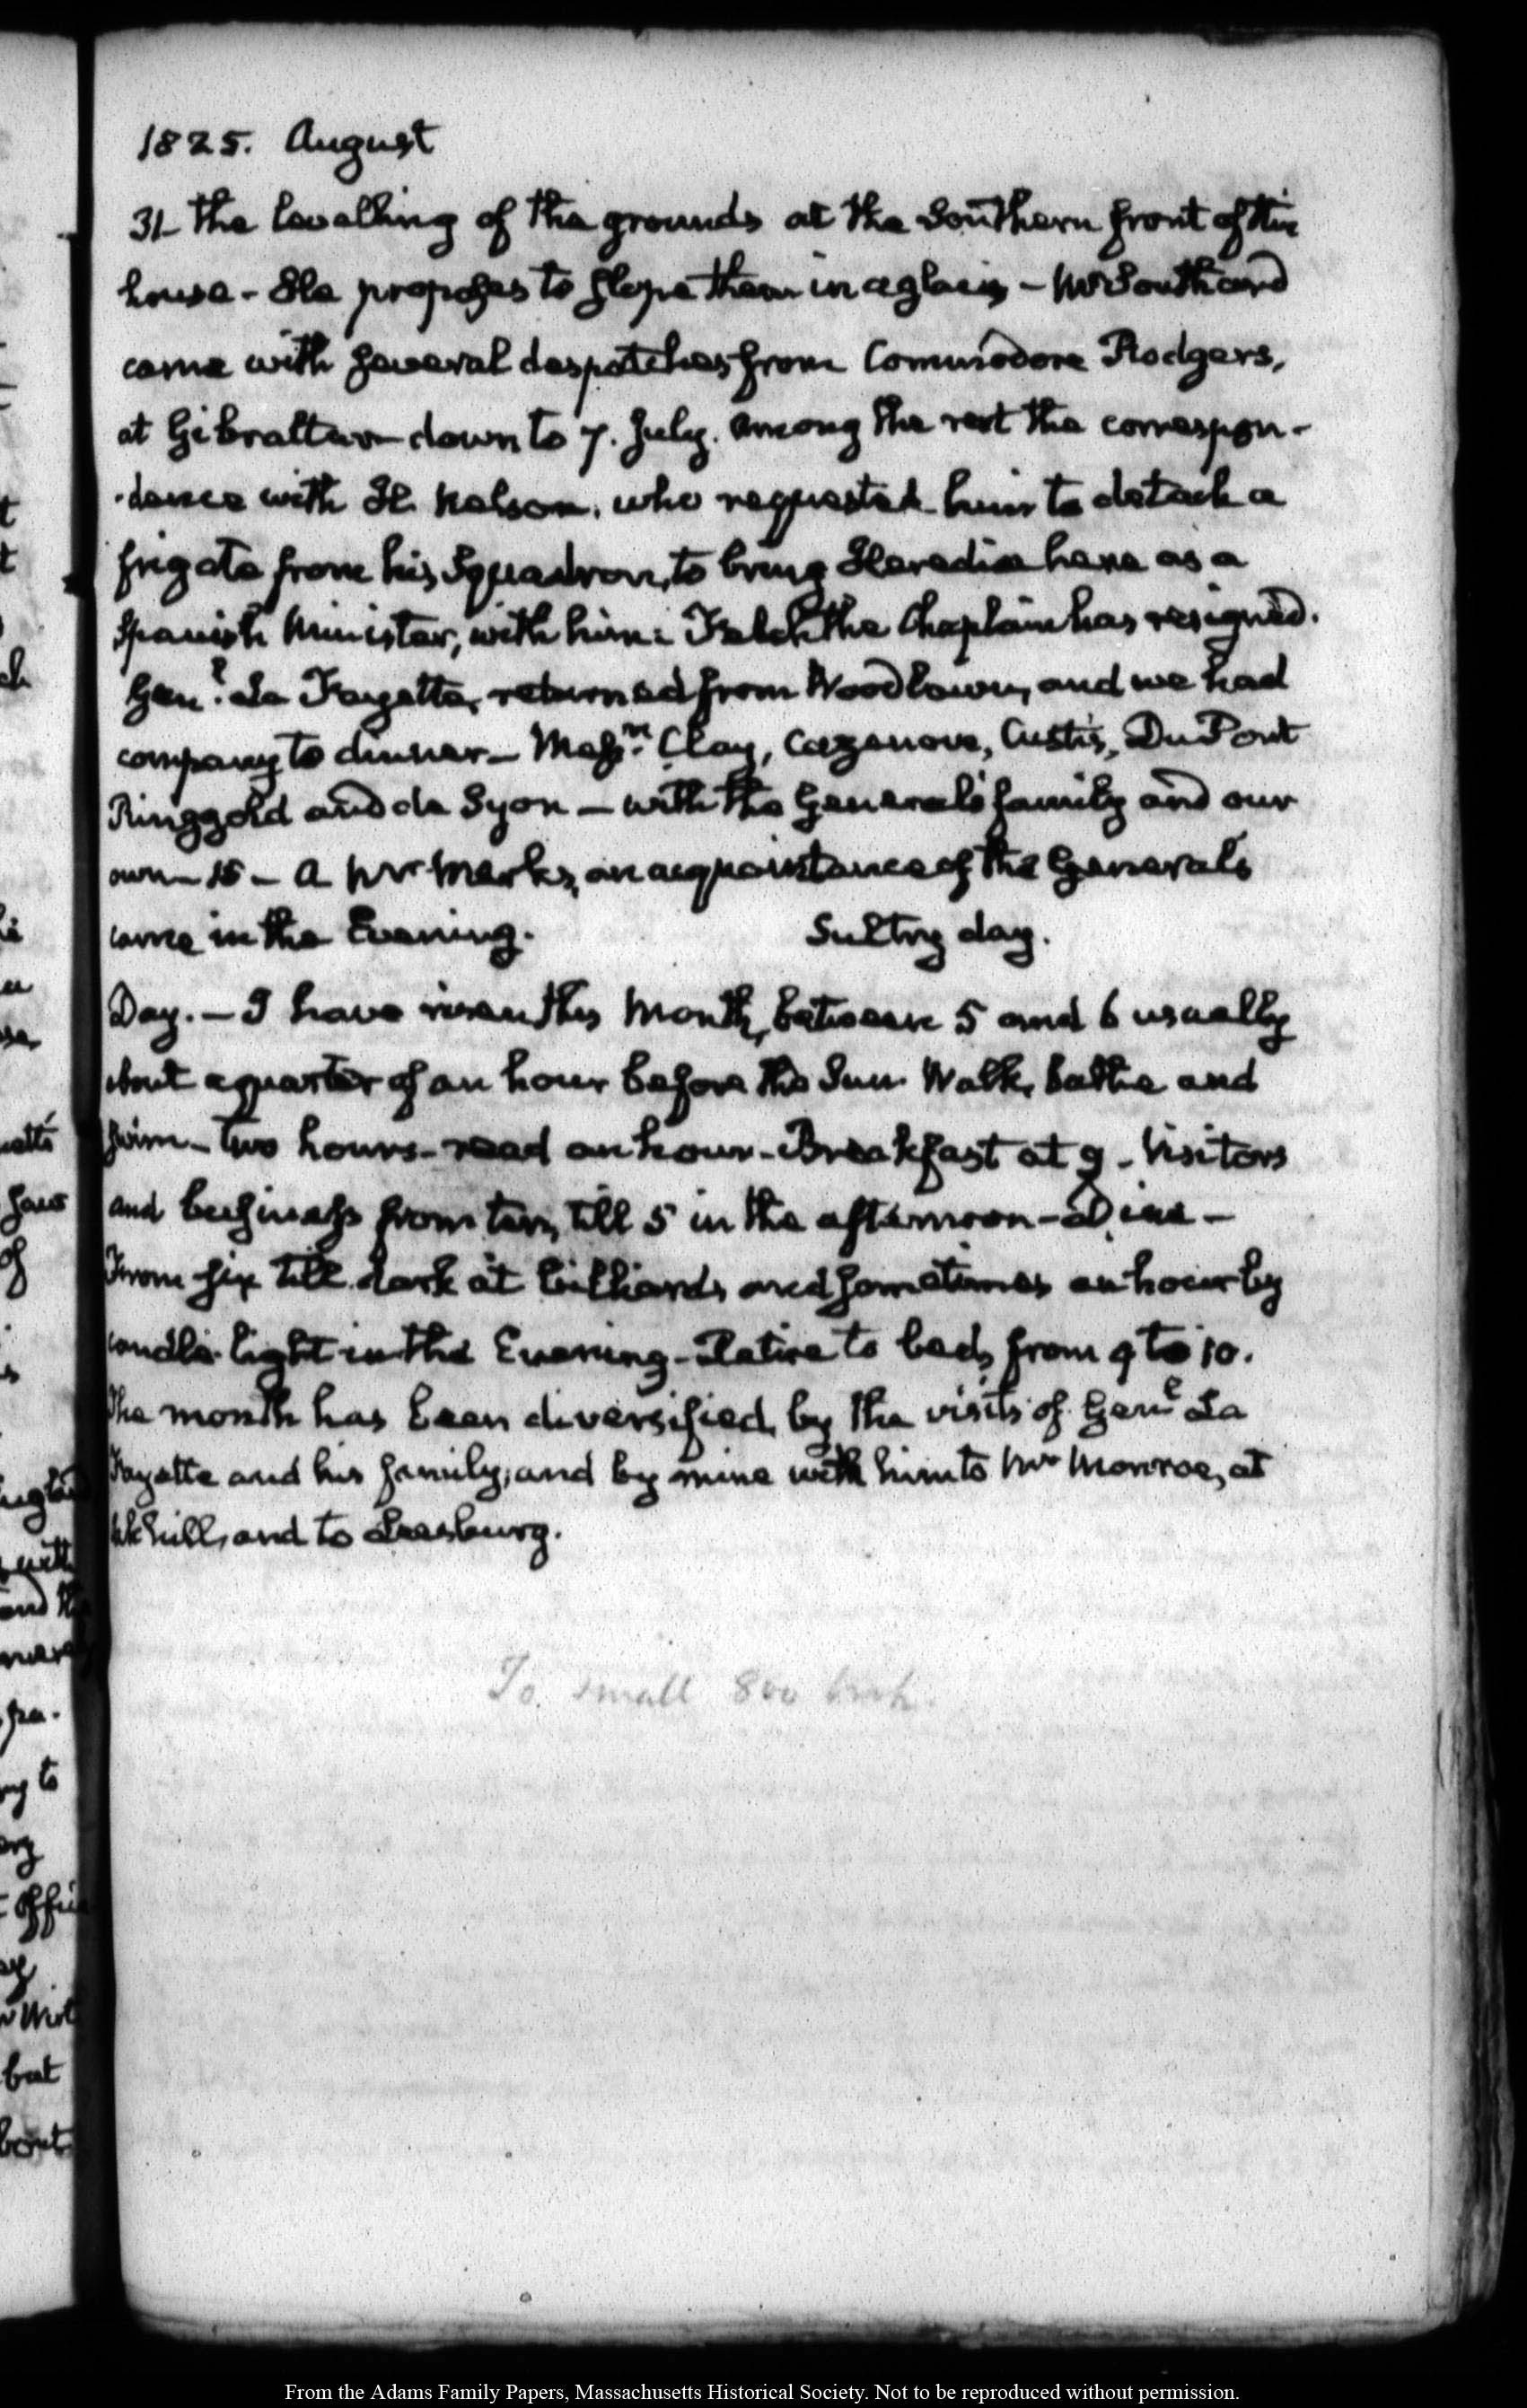 1825. August
31– the levelling of the grounds at the Southern front of the
house – He proposes to slope them in a glacis – Mr Southard
came with several despatches from Commodore Rodgers,
at Gibraltar down to 7. July. among the rest the correspon-
-dence with H. Nelson, who requested him to detach a
frigate from his Squadron, to bring Heredia here as a
Spanish Minister, with him: Felch the Chaplain has resigned.
Genl. La Fayette, returned from Woodlawn, and we had
company to dinner – Messrs. Clay, Cazenove, Custis, Du Pont
Ringgold and de Syon – with the General's family and our
own – 15 – A Mr Marks, an acquaintance of the General's
came in the Evening. Sultry day.
Day. – I have risen this Month, between 5 and 6 usually
about a quarter of an hour before the Sun. Walk, bathe and
swim – two hours – read an hour – Breakfast at 9 – Visitors
and business from ten, till 5 in the afternoon – Dine –
From six till dark at billiards, and sometimes an hour by
candle-light in the Evening – Retire to bed, from 9 to 10.
The month has been diversified, by the visits of Genl La
Fayette and his family, and by mine with him to Mr Monroe, at
hill, and to Leesburg.
To small 8vo book.
From the Adams Family Papers, Massachusetts Historical Society. Not to be reproduced without permission.